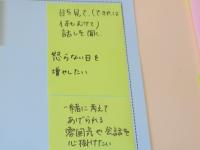 目を見て、(できれば
何もせずに)
話しを聞く
怒らない日を
増やしたい
一緒に考えて
あげられる
雰囲気や会話を
心掛けたい